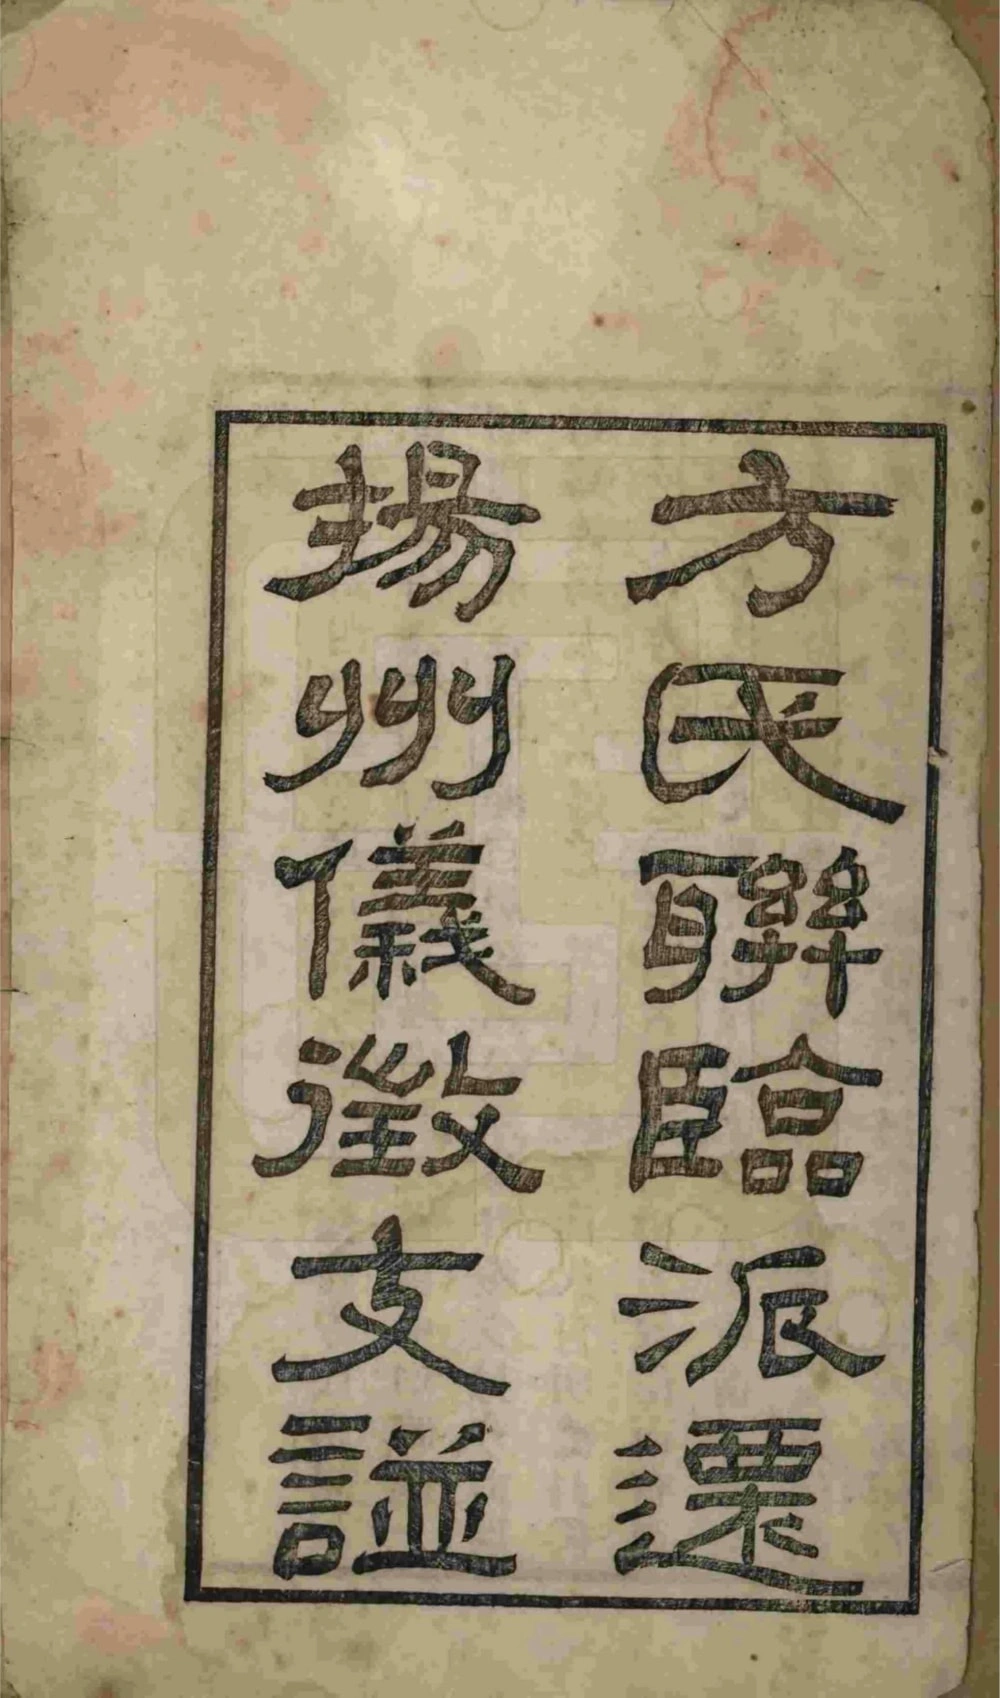 方氏聯臨派遷
揚州儀徵支譜